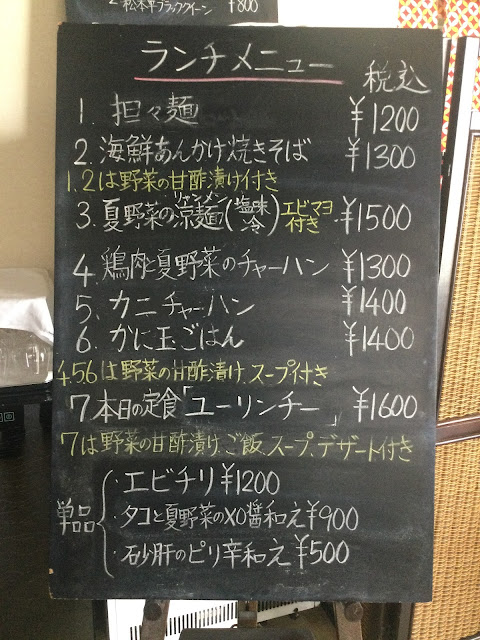 2 松本平ブラッククイーン ¥800
ランチメニュー 税込
1. 担々麺 ¥1200
2. 海鮮あんかけ焼きそば ¥1300
1.2は野菜の甘酢漬け付き
リャンメン
3. 夏野菜の涼麺(塩味 冷) エビマヨ付き ¥1500
4. 鶏肉と夏野菜のチャーハン ¥1300
5. カニチャーハン ¥1400
6. かに玉ごはん ¥1400
4.5.6は野菜の甘酢漬け、スープ付き
7 本日の定食「ユーリンチー」 ¥1600
7は野菜の甘酢漬け、ご飯、スープ、デザート付き
単品
・エビチリ ¥1200
・タコと夏野菜のXO醤和え ¥900
・砂肝のピリ辛和え ¥500